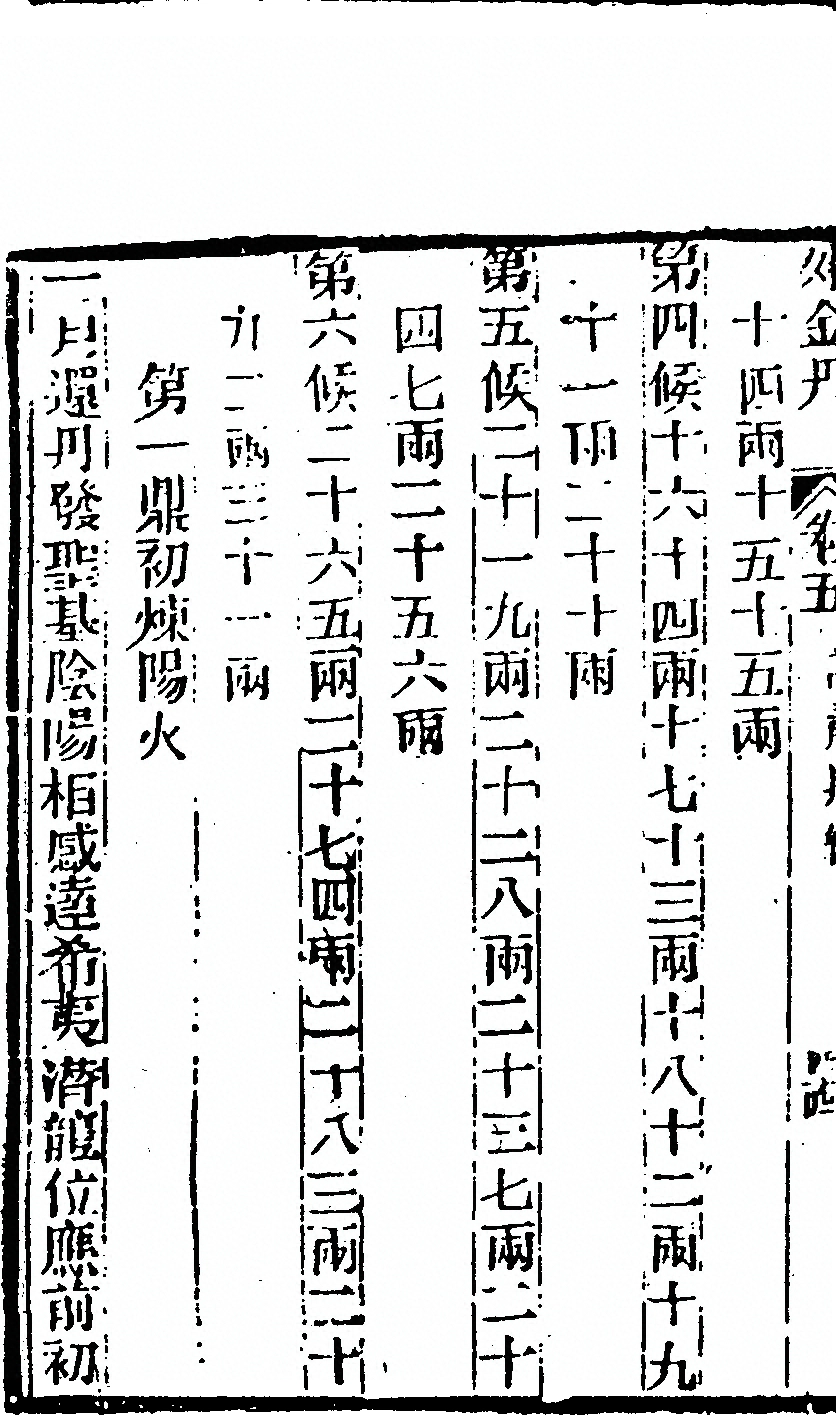 金丹 卷五
十四兩十五十五兩
第四候十六十四兩十七十三兩十八十二兩十九
十一兩二十十兩
第五候二十一九兩二十二八兩二十三七兩二十
四七兩二十五六兩
第六候二十六五兩二十七四兩二十八三兩二十
九二兩三十一兩
第一鼎初煉陽火
一月還丹發聖基陰陽相感逹希夷潛龍位應前初